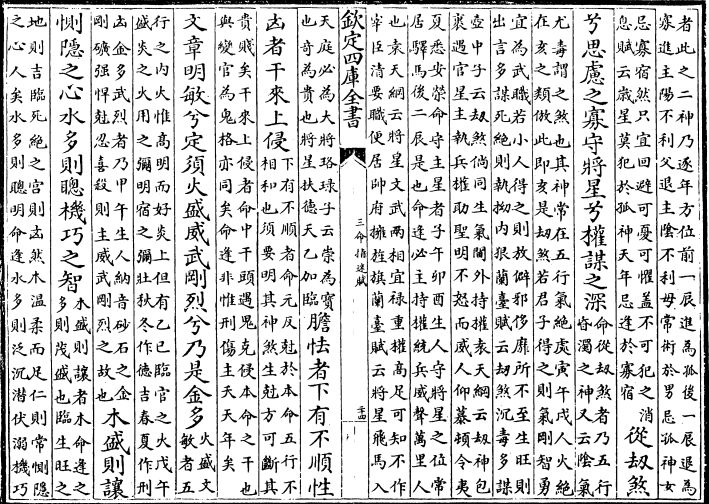 者此之二神乃逐年方位前一辰進為孤後一辰退為
寡進主陽不利父退主陰不利母常術於男忌孤神女
忌寡宿然只宜回避可憂可懼蓋不可犯之消
息賦云歲星莫犯於孤神天年忌逢於寡宿
從刼煞
兮思慮之寡守將星兮權謀之深
命從刼煞者乃五行
昏濁之神又云陰氣
尤毒謂之煞也其神常在五行氣絶處寅午戌人火絶
在亥之類倣此即亥是刼煞若君子得之則氣剛智勇
宜為武職若小人得之則放僻邪侈靡所不至生旺則
出言多謀死絶則執拗内狠蘭臺賦云刼煞沉毒多謀
壺中子云刼煞倘同生氣閫外持權袁天綱云刼神包
裹遇官星主執兵權助聖明不怒而威人仰慕頓令夷
夏悉安榮命守主星者子午卯酉生人守將星之位常
居驛馬後二辰是也命逢必主持權統兵威聲萬里人
也袁天綱云將星文武兩相宜祿重權高足可知不作
宰臣清要職便居帥府擁旌旗蘭臺賦云將星飛馬入
欽定四庫全書
三命指迷賦
十四
天庭必為大將珞琭子云崇為寳
也奇為貴也將星扶德天乙加臨
膽怯者下有不順性
凶者干來上侵
下有不順者命元反尅於本命五行不
相和也須要明其神煞生尅方可斷其
貴賤矣干來上侵者命中干頭遇鬼克侵本命之干也
與變官為鬼格亦同矣命逢非惟刑傷主夭天年矣
文章明敏兮定須火盛威武剛烈兮乃是金多
火盛文
敏者五
行之内火惟高明而好炎上但有乙巳臨官之火戊午
盛炎之火用之彌明宿之彌壯秋冬作德吉春夏作刑
凶金多武烈者乃甲午生人納音砂石之金命
剛礦强悍尅忍喜殺則主威武剛烈之故也
木盛則讓
惻隠之心水多則聰機巧之智
木盛則讓者木命逢之
多則茂盛也臨生旺之
地則吉臨死絶之宫則凶然木温柔而足仁則常惻隠
之心人矣水多則聰明命逢水多則泛沉潜伏溺機巧